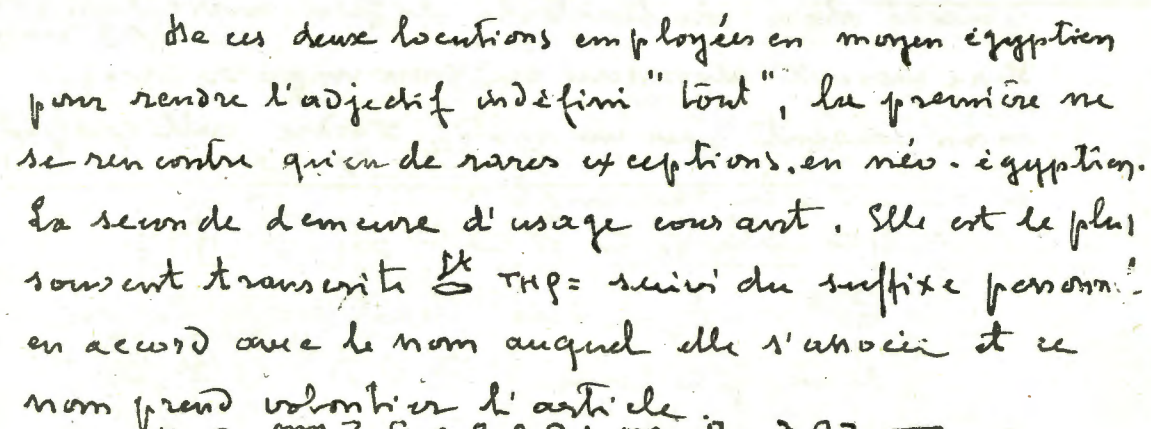 De ces deux locutions employées en moyen égyptien
pour rendre l'adjectif indéfini "tout", la première ne
se rencontre qu'en de rares exceptions. en néo-égyptien.
La seconde demeure d'usage courant. Elle est le plus
souvent transcrite ⲧⲏⲣ= suivi du suffixe personn.
en accord avec le nom auquel elle s'associe et ce
nom prend volontier l'article.